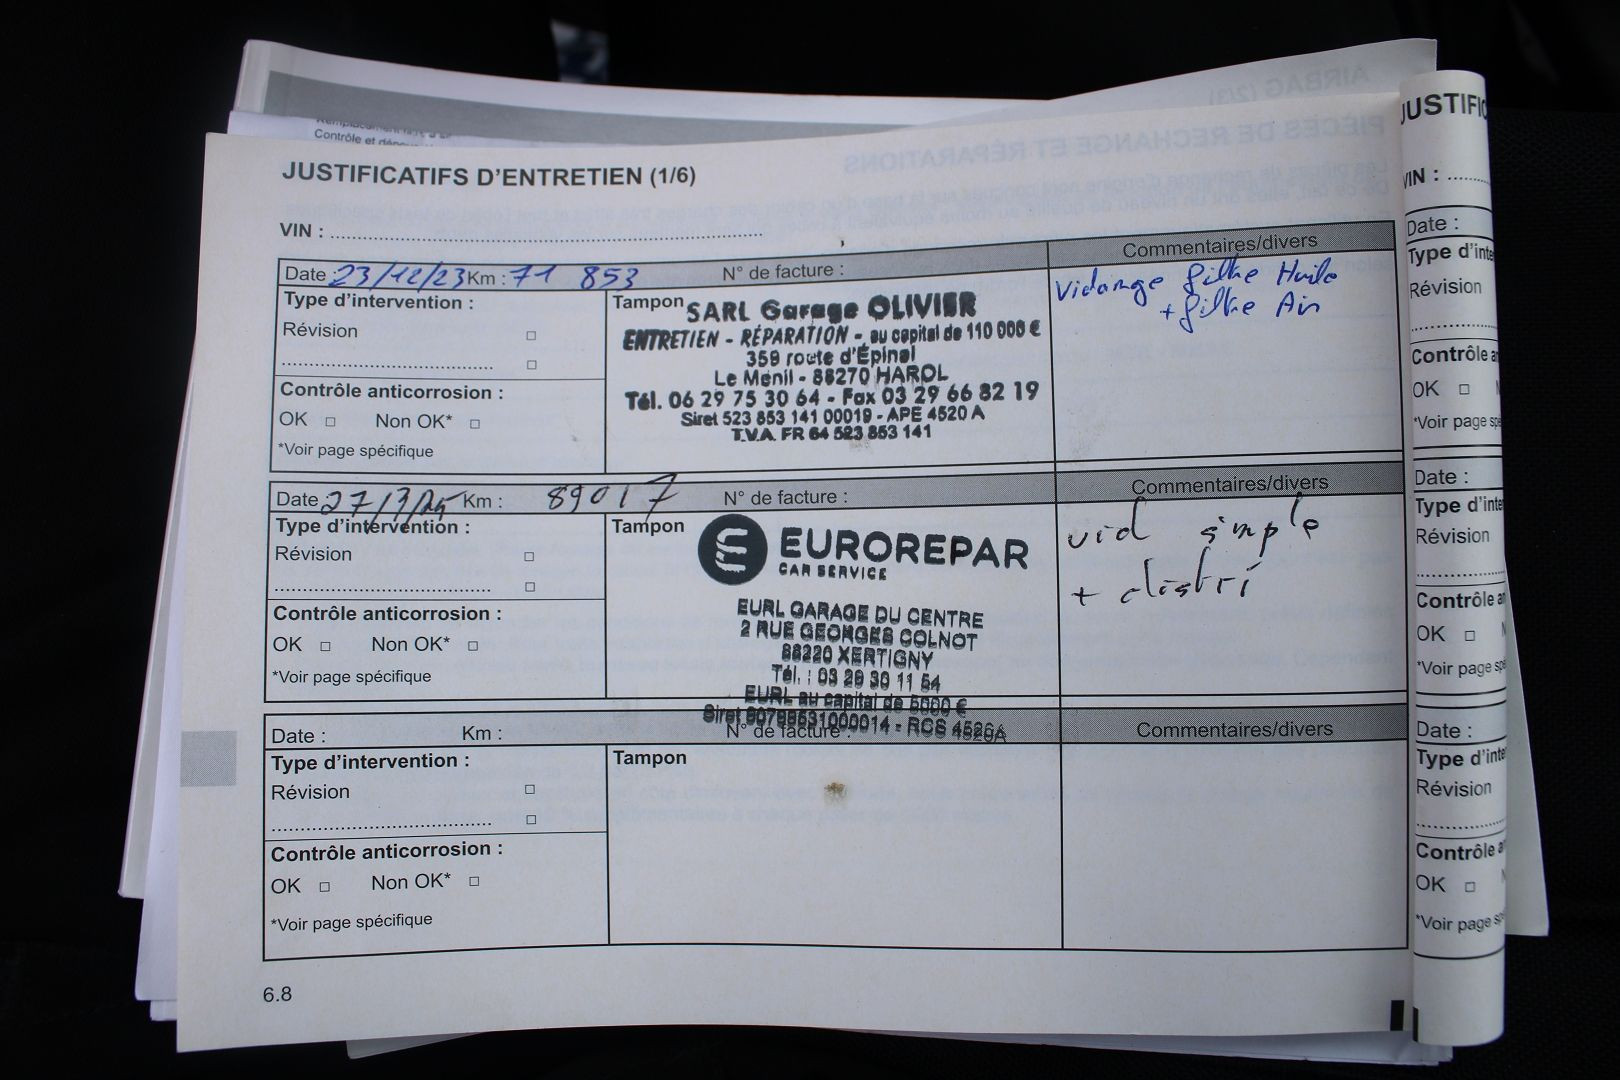 Contrôle et
AIRBAG (2/3)
PIÈCES DE RECHANGE ET RÉPARATIONS
JUSTIFICATIFS D'ENTRETIEN (1/6)
VIN : ...............................................................................
Date : 23/12/23 Km : 71 853 N° de facture : Commentaires/divers
Type d'intervention :
Révision □
........................................... □
Contrôle anticorrosion :
OK □ Non OK* □
*Voir page spécifique
Tampon
SARL Garage OLIVIER
ENTRETIEN - RÉPARATION - au capital de 110 000 €
359 route d'Épinal
Le Ménil - 88270 HAROL
Tél. 06 29 75 30 64 - Fax 03 29 66 82 19
Siret 523 853 141 00019 - APE 4520 A
T.V.A. FR 64 523 853 141
Vidange filtre Huile
+ filtre Air
Date 27/3/25 Km : 89017 N° de facture : Commentaires/divers
Type d'intervention :
Révision □
........................................... □
Contrôle anticorrosion :
OK □ Non OK* □
*Voir page spécifique
Tampon
EUROREPAR
CAR SERVICE
EURL GARAGE DU CENTRE
2 RUE GEORGES COLNOT
88220 XERTIGNY
Tél. : 03 29 30 11 54
EURL au capital de 5000 €
Siret - RCS 4520A
vid simple
+ distri
Date : Km : N° de facture : Commentaires/divers
Type d'intervention :
Révision □
........................................... □
Contrôle anticorrosion :
OK □ Non OK* □
*Voir page spécifique
Tampon
6.8
JUSTIFIC
VIN : ........
Date :
Type d'inte
Révision
................
Contrôle a
OK □
*Voir page spé
Date :
Type d'inte
Révision
................
Contrôle a
OK □
*Voir page spé
Date :
Type d'inte
Révision
................
Contrôle a
OK □
*Voir page sp